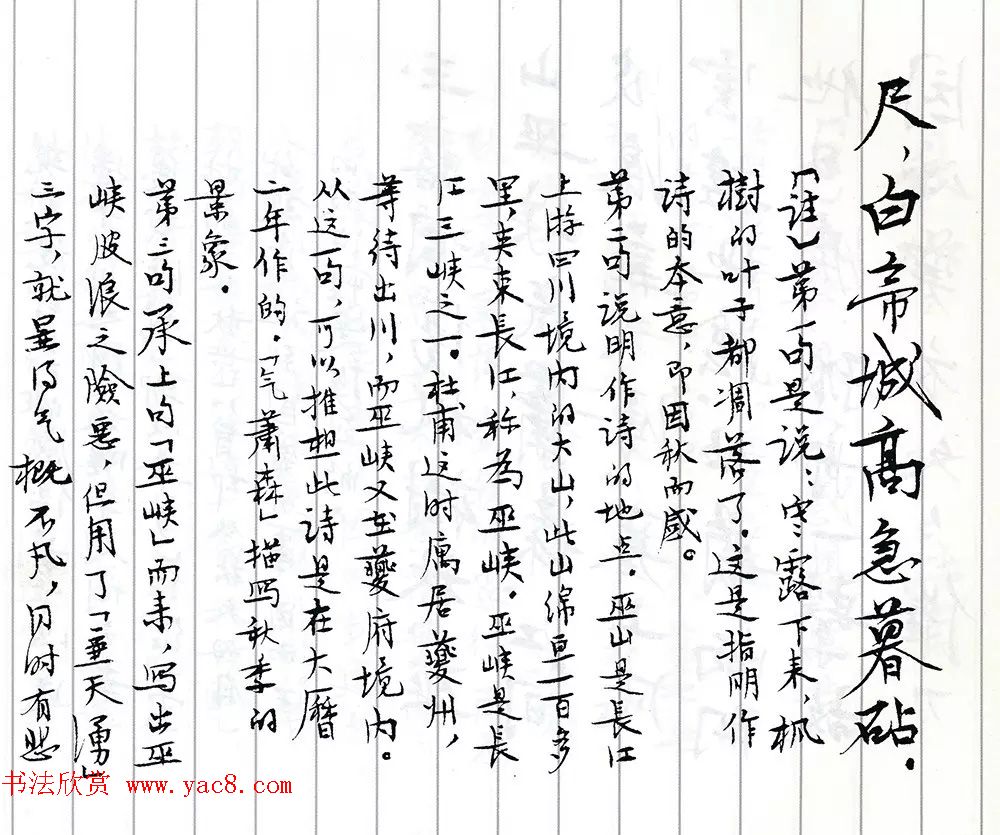 尺，白帝城高急暮砧．
【註】第一句是说：寒露下来，枫
樹的叶子都凋落了。这是指明作
诗的本意，即因秋而感。
第二句说明作诗的地点．巫山是長江
上游四川境内的大山，此山绵亘一百多
里，夹束長江，称為巫峡。巫峡是長
江三峡之一。杜甫这时寓居夔州，
等待出川，而巫峡又在夔府境内。
从这一句，可以推想此诗是在大曆
二年作的．「气萧森」描写秋季的
景象．
第三句承上句「巫峡」而来，写出巫
峡波浪之險恶，但用了「兼天湧」
三字，就显得气概不凡，同时有悲
书法欣赏 www.yac8.com